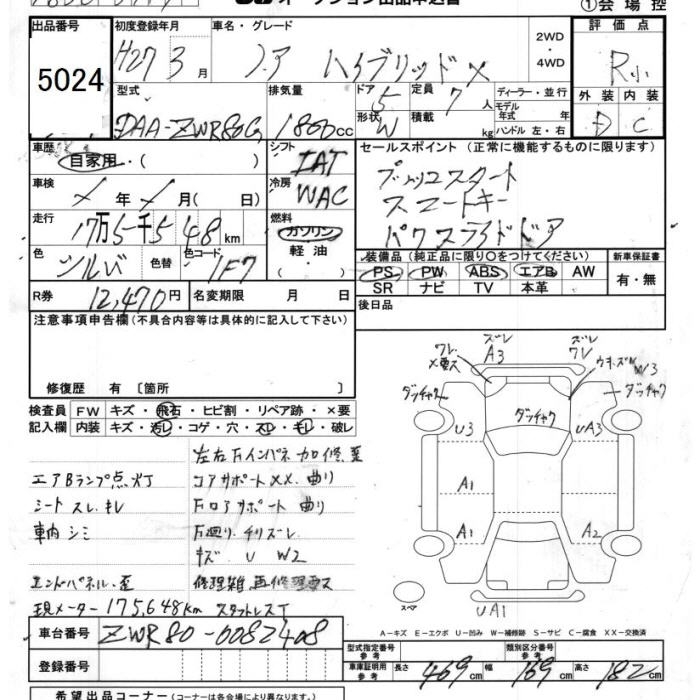 オークション出品申込書
①会場控
出品番号 初度登録年月 車名・グレード 2WD・4WD 評価点
5024 H27 3月 ノア ハイブリッドX R
型式 排気量 ドア 定員 ディーラー・並行 外装 内装
DAA-ZWR80G 1800cc 5 7人 モデル年式 年式 D C
形状 W 積載 kg ハンドル 左・右
車歴 自家用・( ) シフト IAT セールスポイント (正常に機能するものに限ります)
車検 年 月(日) 冷房 WAC プッシュスタート
スマートキー
走行 17万5千548km 燃料 ガソリン 軽油・ パワースライドドア
色 シルバ 色替 色コード 1F7 装備品(純正品に限り〇をつけてください) 新車保証書
PS PW ABS エアB AW 有・無
SR ナビ TV 本革
R券 12,470円 名変期限 月 日 後日品
注意事項申告欄(不具合内容等は具体的に記入して下さい)
修復歴 有〔箇所
検査員 FW キズ・飛石・ヒビ割・リペア跡・×要
記入欄 内装 キズ・汚レ・コゲ・穴・スレ・キレ・破レ
左右Fインパネ加修歪
エアBランプ点灯 コアサポートXX曲り
シートスレキレ Fロアサポート曲り
車内シミ F廻リチリズレ
キズ U W2
エンドパネル歪 修理雑 再修理要ス
現メーター175,648km スタットレスT
ズレ ズレ
ワレ A3 ワレ
×要ス W3
ダッチャク ダッチャク ダッチャク
U3 UA3
A1
A1 A2
スペア UA1
A-キズ E-エクボ U-凹み W-補修跡 S-サビ C-腐食 XX-交換済
車台番号 ZWR80-0082408
型式指定番号 参考 類別区分番号 参考
登録番号 車庫証明用 参考 長さ 469cm 幅 169cm 高さ 182cm
希望出品コーナー(コーナーは各会場により異なります)